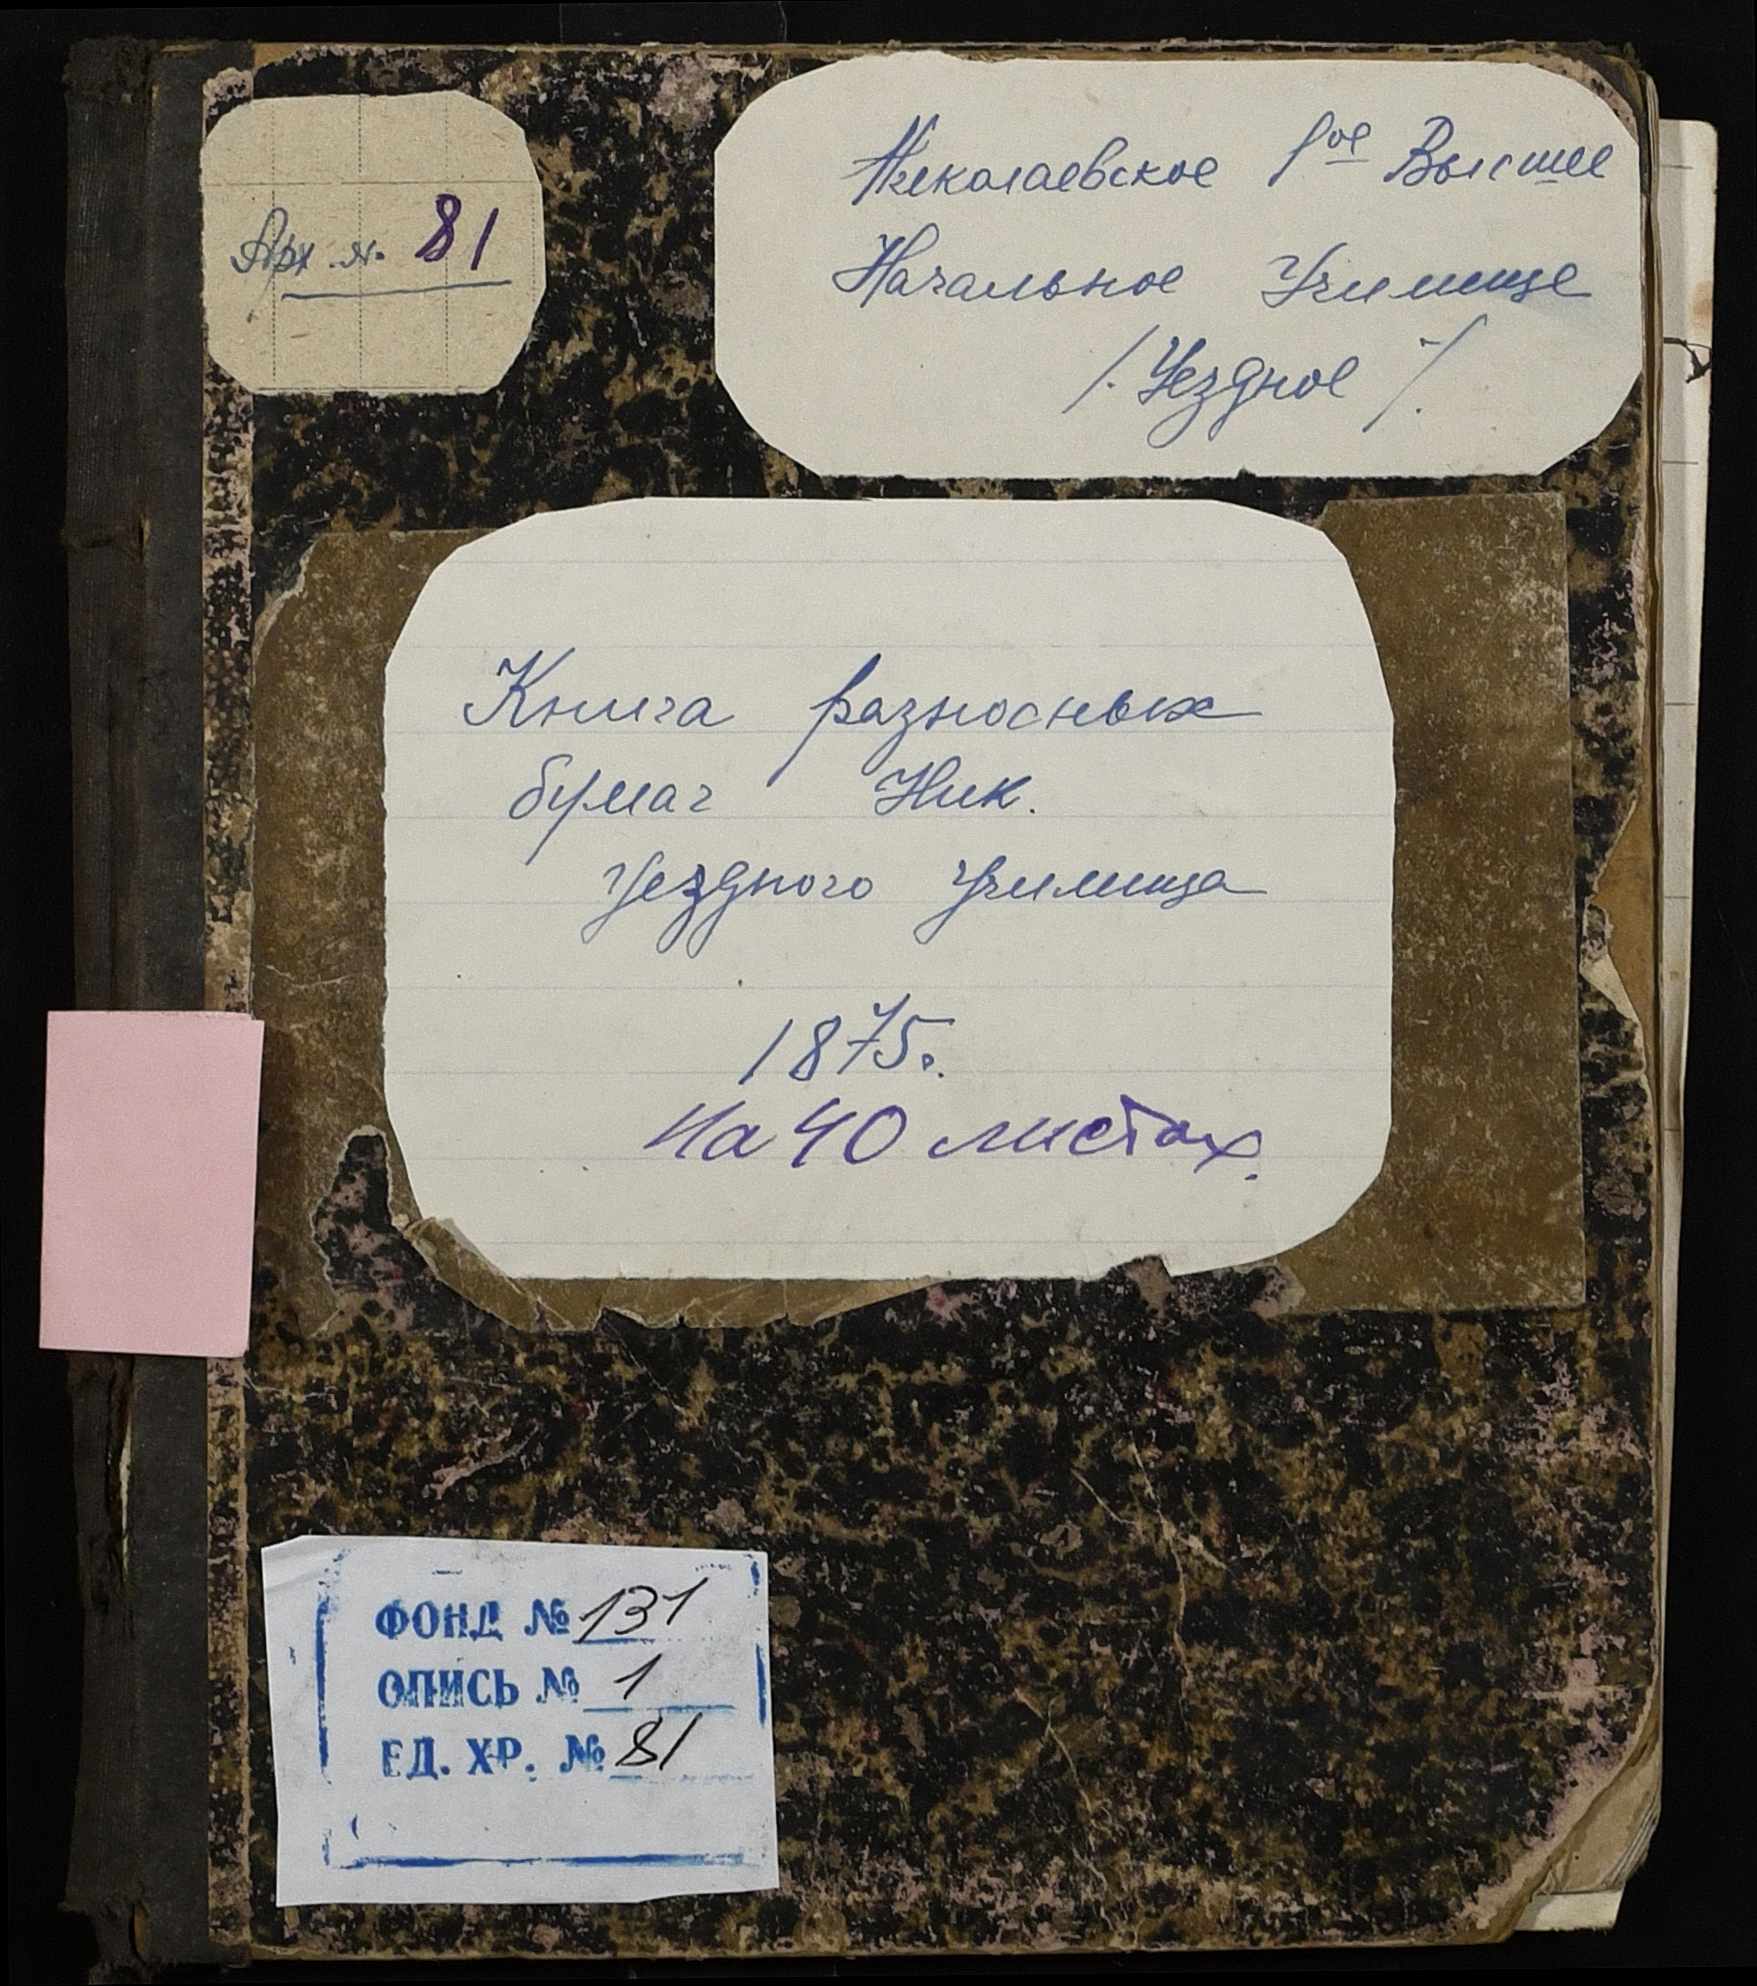 Арх. №. 81
Николаевское 1ое Высшее
Начальное Училище
/. Уездное ./
Книга разносных
бумаг Ник.
Уездного Училища
1875г.
На 40 листах.
ФОНД № 131
ОПИСЬ № 1
ЕД. ХР. № 81